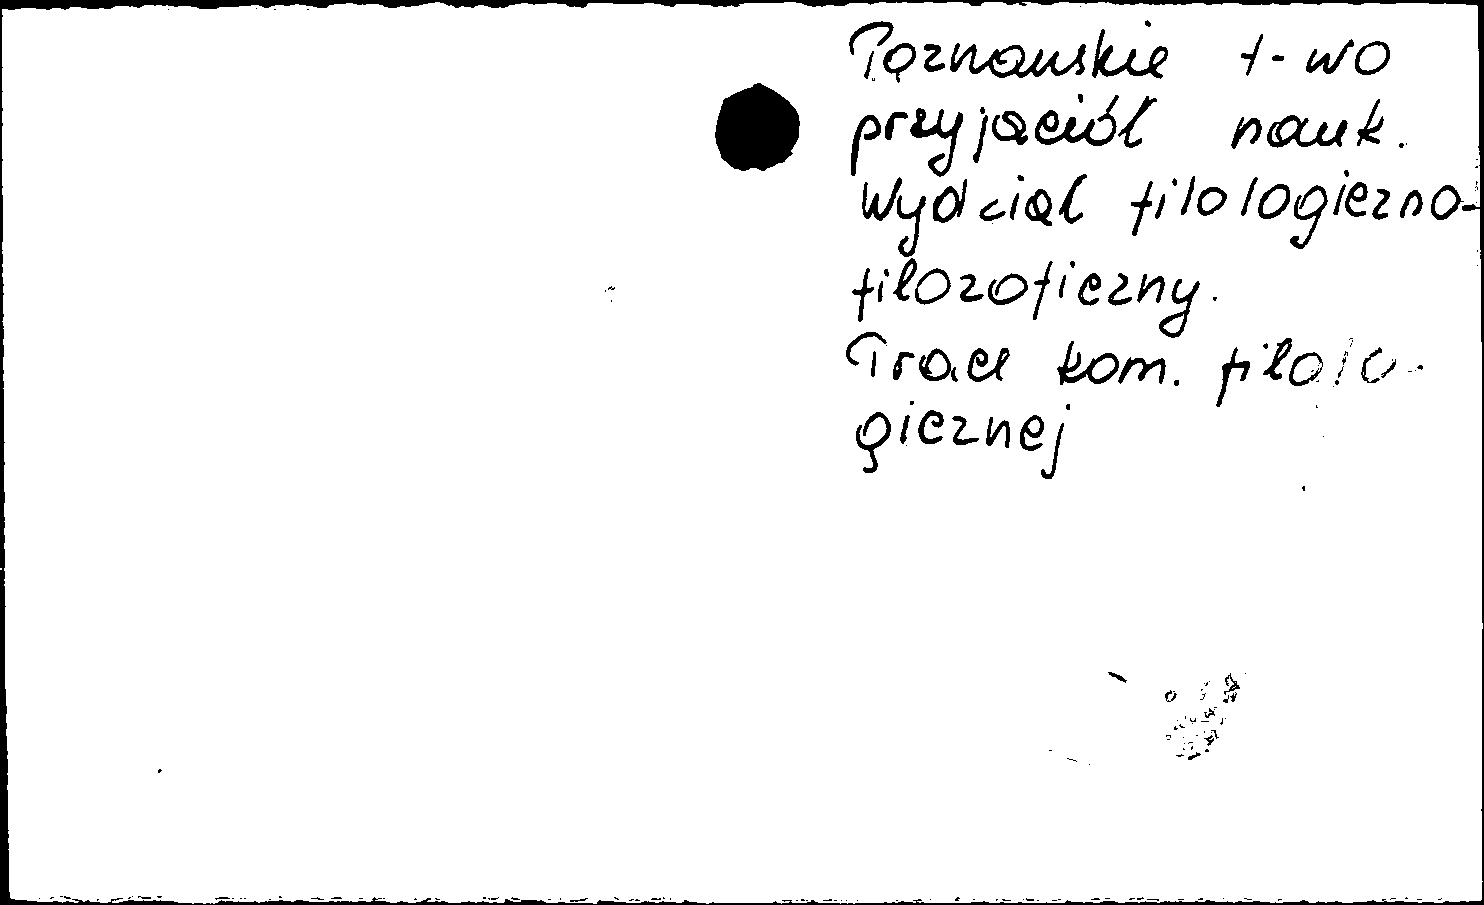 Poznanskie t-wo
przyjaciół nauk.
Wydział filologiczno-
filozoficzny.
Prace kom. filolo-
gicznej